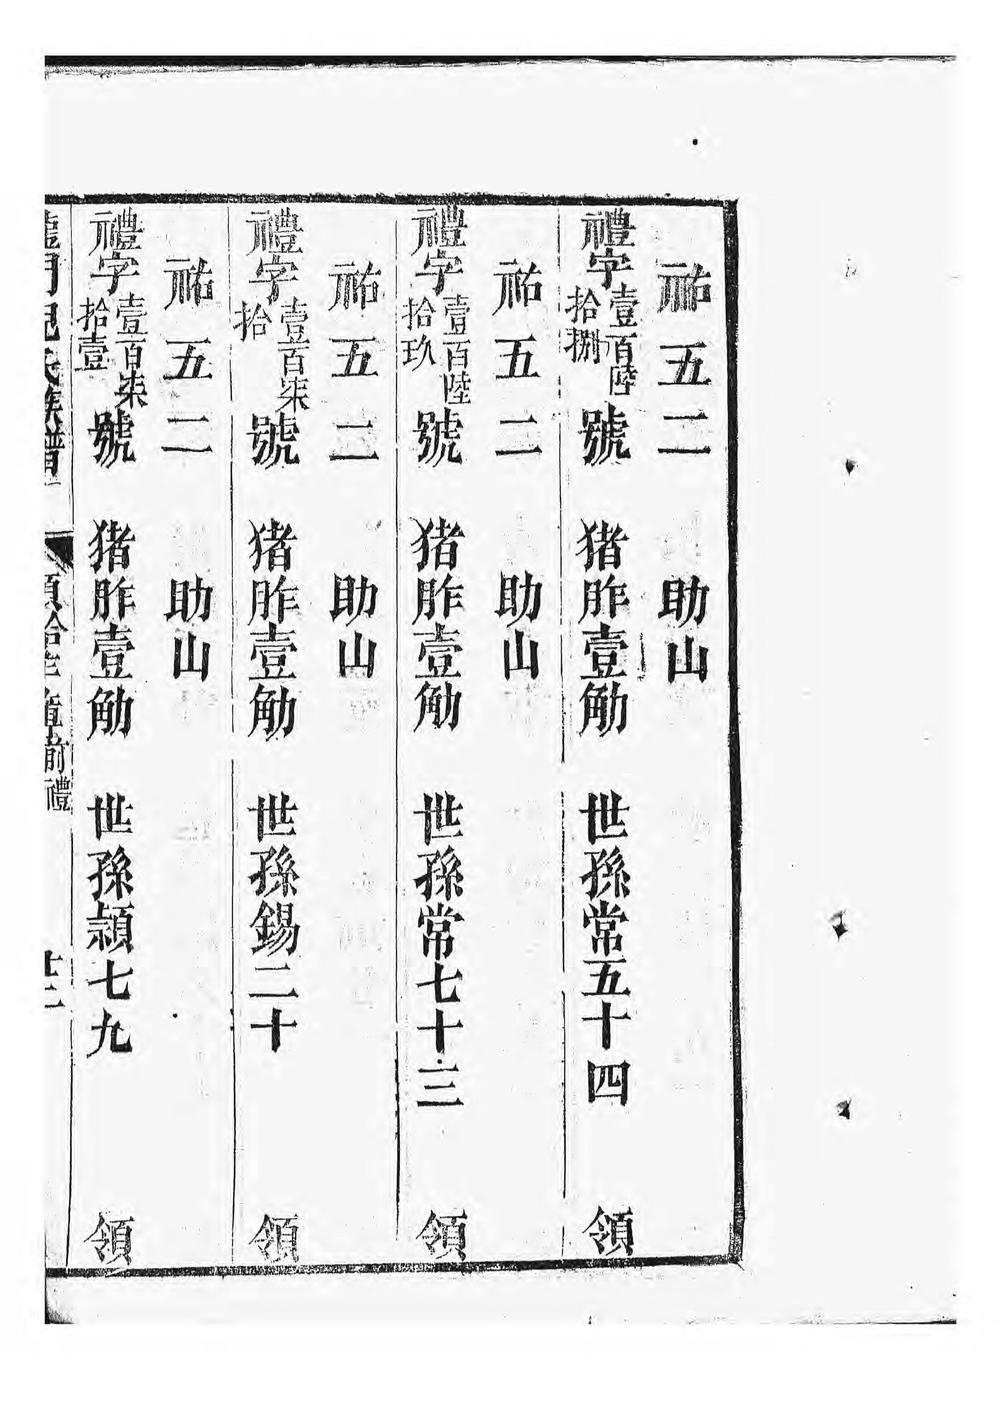 祐五二　助山
禮字壹百陸拾捌號　猪胙壹觔　世孫常五十四　領
祐五二　助山
禮字壹百陸拾玖號　猪胙壹觔　世孫常七十三　領
祐五二　助山
禮字壹百柒拾號　猪胙壹觔　世孫錫二十　領
祐五二　助山
禮字壹百柒拾壹號　猪胙壹觔　世孫頴七九　領
門　氏族譜　前禮　廿二